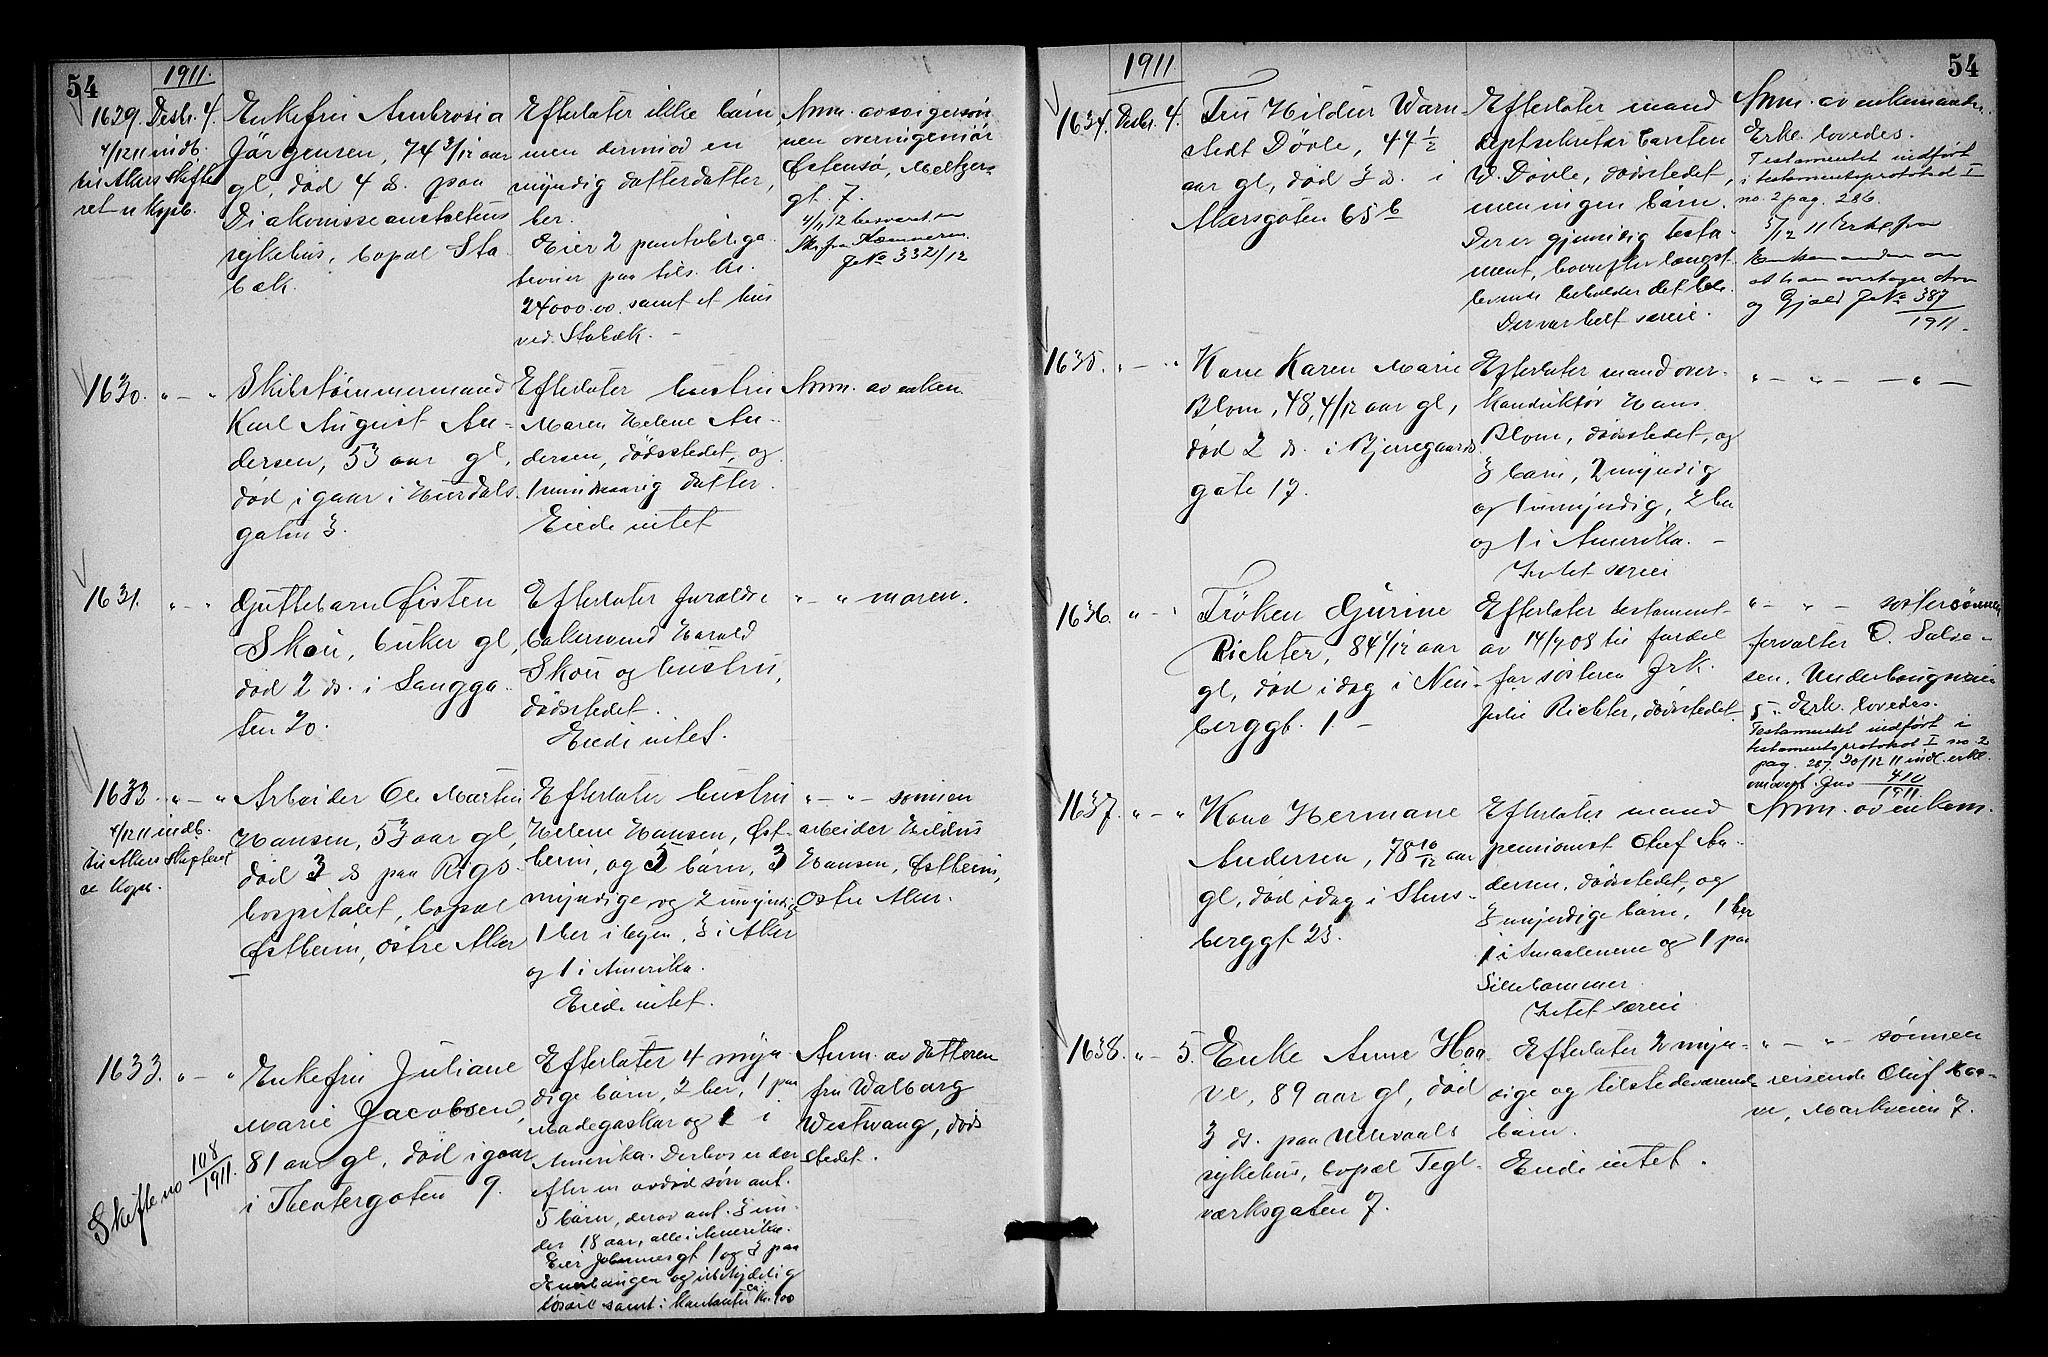 54
1911.
1629. Desbr. 4.
4/12 11 indb.
til Akers skifte
ret u Kopb.
Enkefru Ambrosia
Jørgensen, 74 3/12 aar
gl, død 4 ds. paa
Diakonisseanstaltens
sykehus, bopæl Sta-
bæk.
Efterlater ikke børn,
men derimod en
myndig datterdatter,
her.
Eier 2 pantobliga-
tioner paa tils. kr.
24000.00 samt et hus
ved Stabæk. -
Anm. av svigersøn-
nen overingeniør
Østensø, Meltzers-
gt. 7.
4/1 12 besvaret en
Skr. fra Kæmneren
J. No 332/12
1630. " - "
Skibstømmermand
Karl August An-
dersen, 53 aar gl,
død igaar i Hurdals-
gaten 3.
Efterlater hustru
Maren Helene An-
dersen, dødsstedet, og
1 mindreaarig datter.
Eiede intet
Anm. av enken.
1631. " - "
Guttebarn Øisten
Skou, 6 uker gl,
død 2 ds. i Langga-
ten 20.
Efterlater forældre
bakersvend Harald
Skou og hustru,
dødsstedet.
Eiedi intet.
" - " moren.
1633. " - "
4/12 11 indb.
til Akers skifteret
se Kopb.
Arbeider Ole Martin
Hansen, 53 aar gl,
død 3 ds paa Rigs-
hospitalet, bopæl
Østheim, østre Aker
Efterlater hustru
Helene Hansen, Øst-
heim, og 5 børn, 3
myndige og 2 umyndige
1 her i byen, 3 i Aker
og 1 i Amerika.
Eiedi intet.
" - " - sønnen
arbeider Hildus
Hansen, Østheim,
Østre Aker.
1633. " - "
Skifte no 108/1911.
Enkefru Juliane
Marie Jacobsen,
81 aar gl, død igaar
i Theatergaten 9.
Efterlater 4 myn-
dige børn, 2 her, 1 paa
Madagaskar og 1 i
Amerika. Derhos er der
efter en avdød søn ant.
5 børn, derav ant. 3 un-
der 18 aar, alle i Amerika.
Eier Johannesgt 1 og 3 paa
Enerhaugen og ubetydelig
løsøre samt i kontanter ca. kr. 400
Anm. av datteren
fru Walborg
Westvang, døds-
stedet.
54
1911.
1634. Desbr. 4.
Fru Hildur Warn-
stedt Døvle, 44 1/2
aar gl, død 3 ds. i
Akersgaten 65 b
Efterlater mand
deptsekretær Carsten
W. Døvle, dødsstedet,
men ingen børn.
Der er gjensidig testa-
ment, hvorefter længst-
levende beholder det hele.
Der var helt særeie.
Anm. av enkemanden.
Erkl. lovedes.
Testamentet indført
i testamentsprotokol I
no. 2 pag. 286.
5/12 11 Erkl fra
Enkemanden om
at han overtager Arv
og Gjæld J. No 387
1911.
1635. " - "
Kone Karen Marie
Blom, 48, 4/12 aar gl,
død 2 ds. i Bjerregaards
gate 17.
Efterlater mand over-
konduktør Hans
Blom, dødsstedet, og
3 børn, 2 myndig
og 1 umyndig, 2 her
og 1 i Amerika. -
Intet særeie
" - " - - " -
1636. " - "
Frøken Gurine
Richter, 84 1/12 aar
gl, død idag i Neu-
berggt. 1. -
Efterlater testament-
av 14/7 08 til fordel
for søsteren frk.
Julie Richter, dødsstedet.
" - " - søstersønnen
forvalter O. Salve-
sen, Underhaugsveien
5. Erk. lovedes.
Testamentet indført i
testamentsprotokol I no. 2
pag. 287. 30/12 11 indl. erkl.
omovert. Jno 410
1911.
1637. " - "
Kone Hermane
Andersen, 78 10/12 aar
gl, død idag i Stens-
berggt 23.
Efterlater mand
pensionist Oluf An-
dersen, dødsstedet, og
3 myndige børn, 1 her
1 i Smaalenene og 1 paa
Lillehammer.
Intet særeie
Anm. av enkem.
1638. " - 5.
Enke Anne Haa-
ve, 89 aar gl, død
3 ds. paa Ullevaals
sykehus, bopæl Tegl-
værksgaten 7.
Efterlater 2 myn-
dige og tilstedeværende
børn.
Eiedi intet.
" - " - sønnen
reisende Oluf Haa-
ve, Markveien 7.